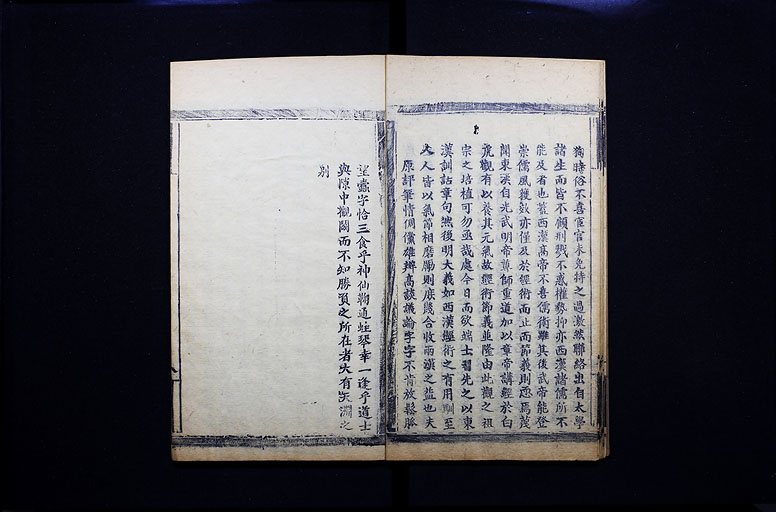 狥時俗不喜宦官未免持之過激然聯絡出自太學
諸生而皆不顧刑戮不惑權勢抑亦西漢諸儒所不
能及者也蓋西漢高帝不喜儒術雖其後武帝能登
崇儒風獲效亦僅及於經術而止而節義則恧焉茂
聞東漢自光武明帝尊師重道加以章帝講經於白
虎觀有以養其元氣故經術節義並隆由此觀之祖
宗之培植可勿亟哉處今日而欲端士習先之以東
漢訓詁章句然後明大義如西漢經術之有用 至
夫人皆以氣節相磨勵則庶幾合收兩漢之益也夫
原評筆情倜儻雄辨高談議論字字不肯放鬆脉
望蠹字恰三食乎神仙鞠通蛀琴幸一逢乎道士
與隙中觀鬪而不知勝負之所在者大有天淵之
別